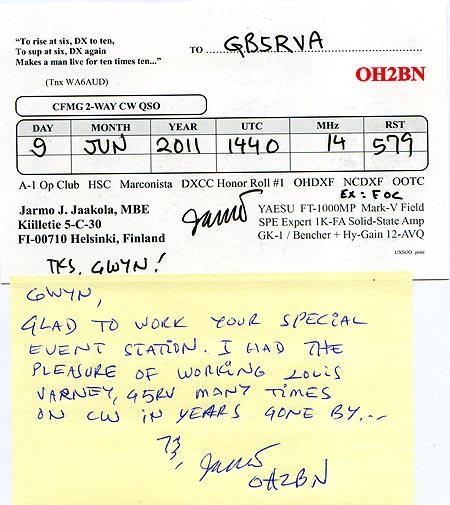 "To rise at six, DX to ten,
To sup at six, DX again
Makes a man live for ten times ten..."
(Tnx WA6AUD)
TO GB5RVA
OH2BN
CFMG 2-WAY CW QSO
DAY MONTH YEAR UTC MHz RST
9 JUN 2011 1440 14 579
A-1 Op Club HSC Marconista DXCC Honor Roll #1 OHDXF NCDXF OOTC
EX: FOC
Jarmo J. Jaakola, MBE
Kiilletie 5-C-30
FI-00710 Helsinki, Finland
Jarmo
YAESU FT-1000MP Mark-V Field
SPE Expert 1K-FA Solid-State Amp
GK-1 / Bencher + Hy-Gain 12-AVQ
UX5UO print
TKS, GWYN!
GWYN,
GLAD TO WORK YOUR SPECIAL
EVENT STATION. I HAD THE
PLEASURE OF WORKING LOUIS
VARNEY, G5RV MANY TIMES
ON CW IN YEARS GONE BY...
73,
Jarmo
OH2BN